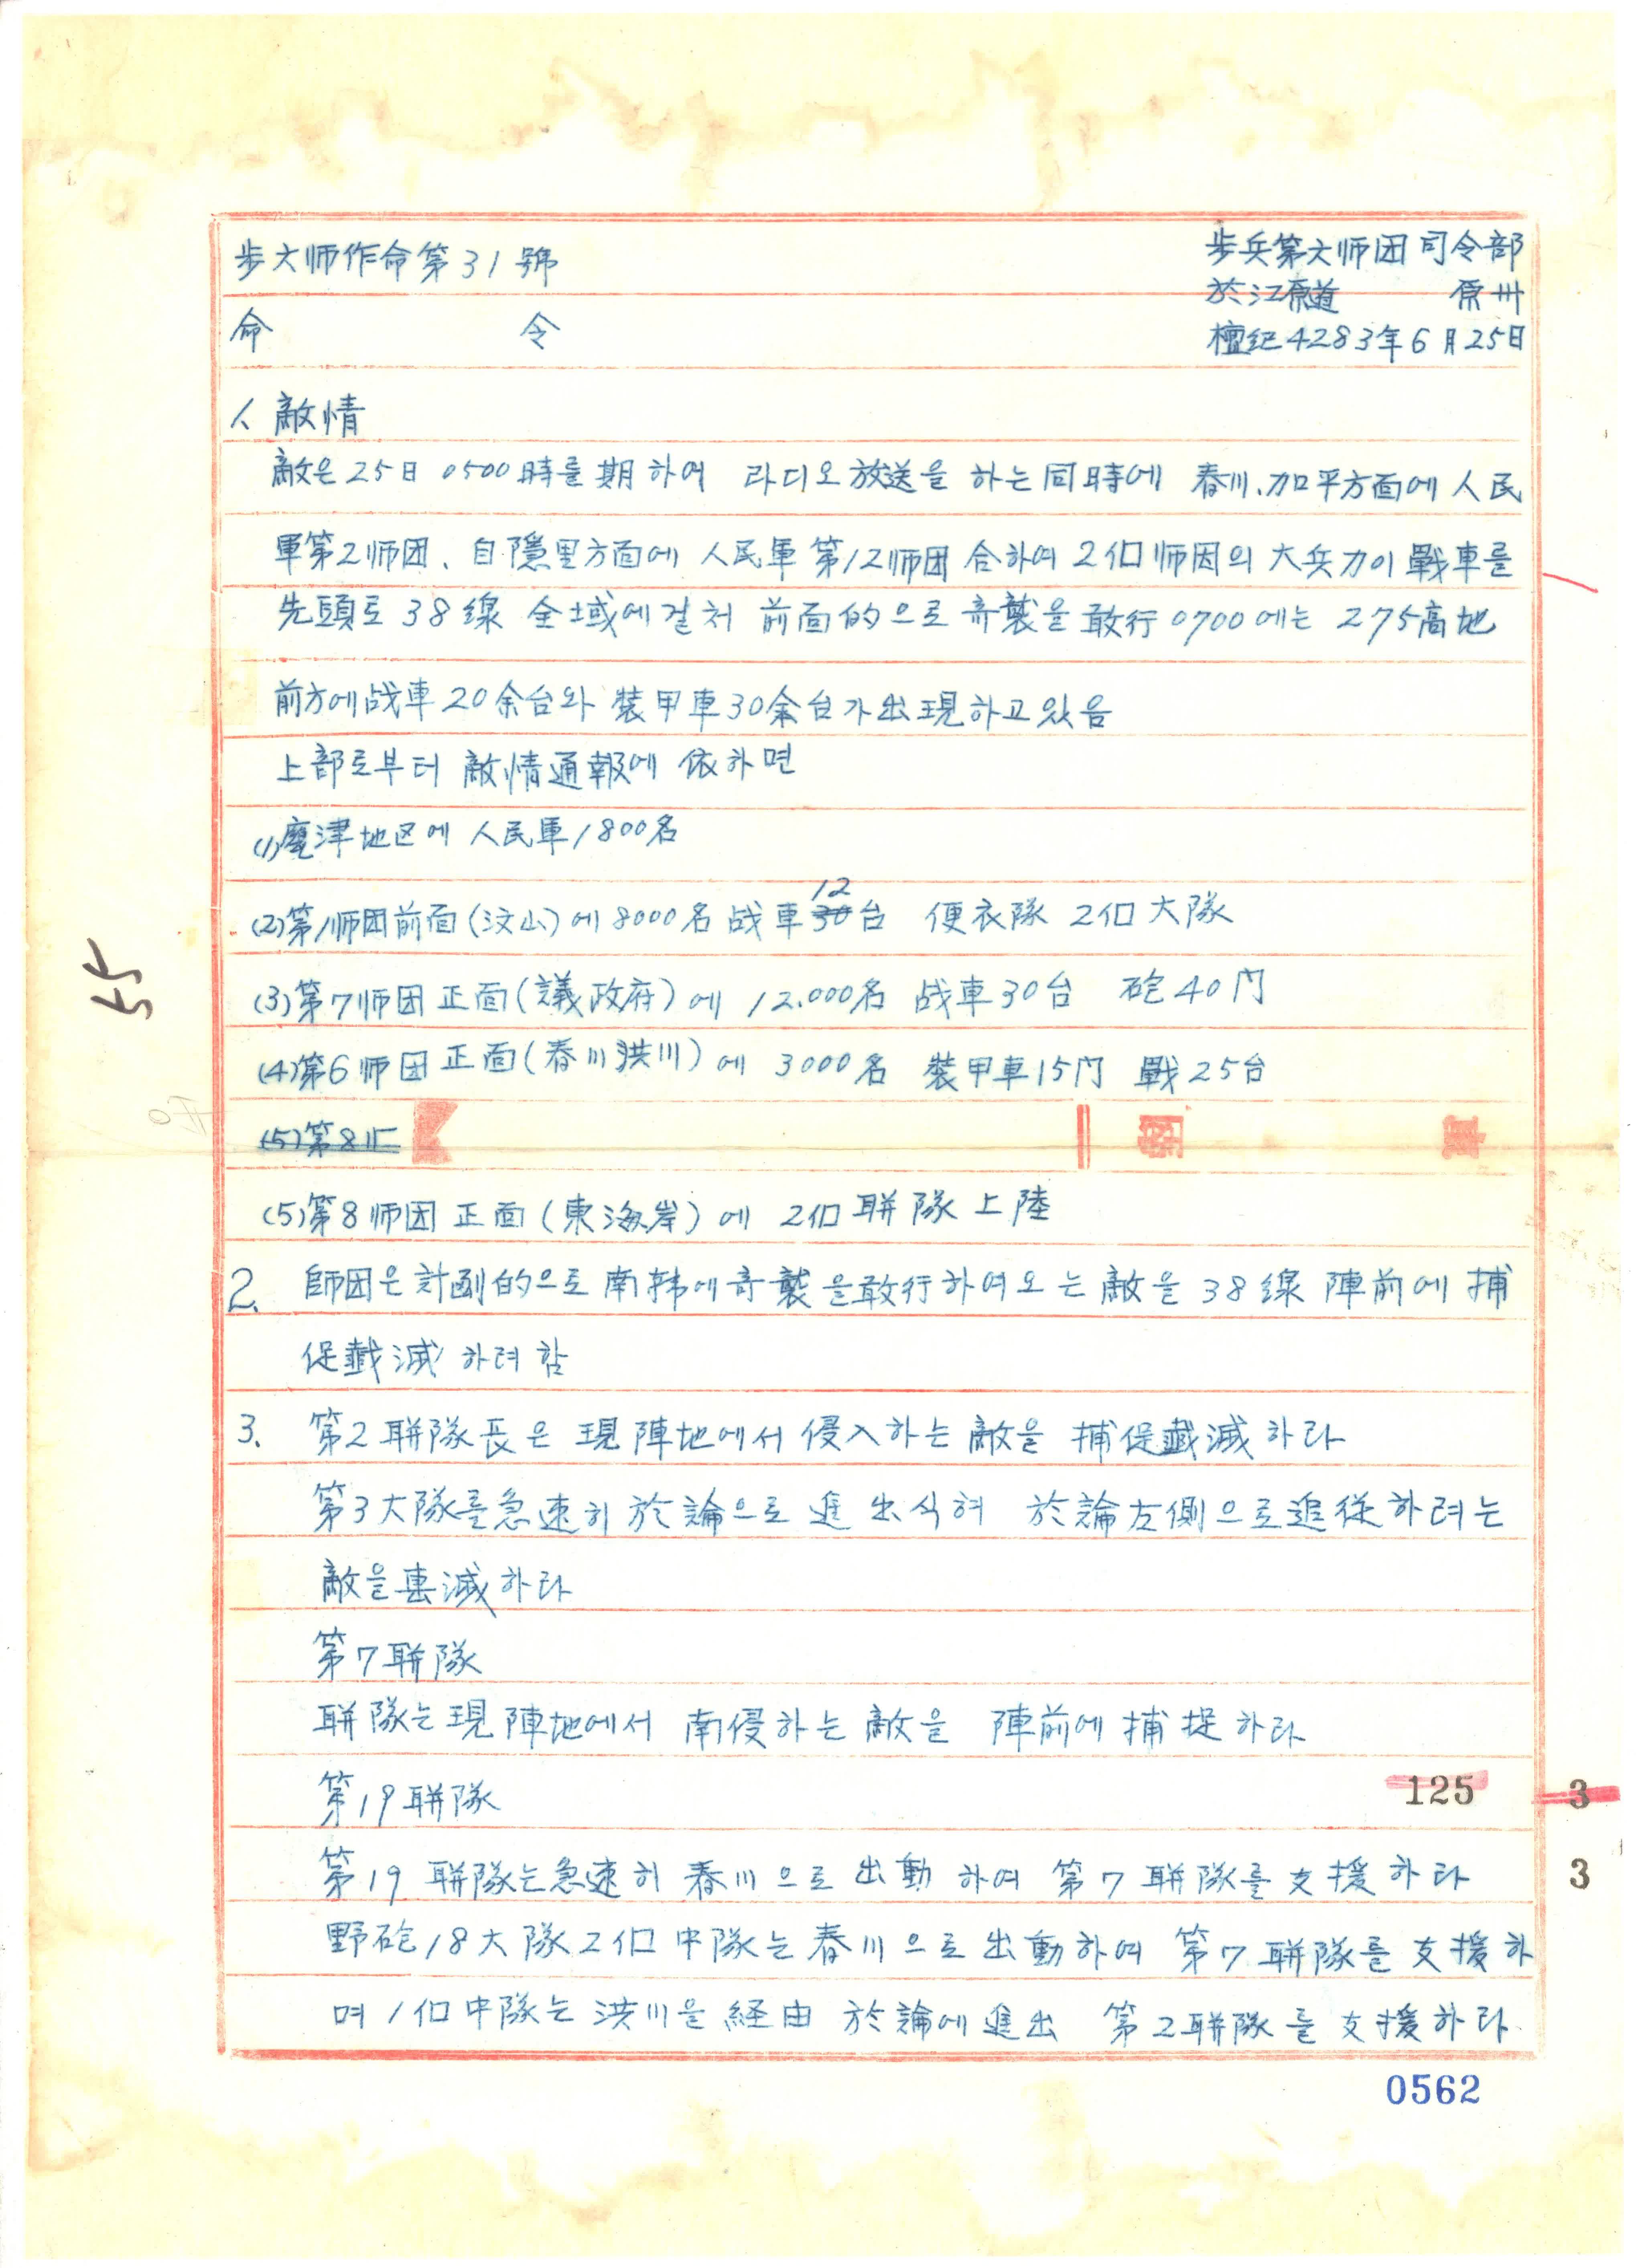 步六师作命第31號
步兵第六师团司令部
於江原道 原州
命 令
檀紀4283年6月25日
1. 敵情
敵은 25日 0500時를 期하여 라디오 放送을 하는 同時에 春川、加平方面에 人民
軍第2师团、自隱里方面에 人民軍 第12师团 合하여 2個师团의 大兵力이 戰車를
先頭로 38線 全域에 걸처 前面的으로 奇襲을 敢行 0700에는 275高地
前方에 战車 20余台와 裝甲車 30余台가 出現하고 있음
上部로부터 敵情通報에 依하면
(1) 甕津地区에 人民軍 1800名
(2) 第1师团前面(汶山)에 8000名 战車 30 12 台 便衣隊 2個大隊
(3) 第7师团 正面(議政府)에 12.000名 战車30台 砲40门
(4) 第6师团 正面(春川洪川)에 3000名 裝甲車15门 戰25台
(5) 第8
(5) 第8师团 正面(東海岸)에 2個 联隊 上陸
2. 師团은 計劃的으로 南韩에 奇襲을 敢行하여오는 敵을 38線 陣前에 捕
促韱滅 하려 함
3. 第2联隊長은 現陣地에서 侵入하는 敵을 捕促韱滅하라
第3大隊를 急速히 於論으로 進出식혀 於論左側으로 追從하려는
敵을 滅하라
第7联隊
联隊는 現陣地에서 南侵하는 敵을 陣前에 捕捉하라
第19联隊
125 3
第19联隊는 急速히 春川으로 出動하여 第7联隊를 支援하라
3
野砲18大隊2個中隊는 春川으로 出動하여 第7联隊를 支援하
며 1個中隊는 洪川을 経由 於論에 進出 第2联隊를 支援하라
0562
55